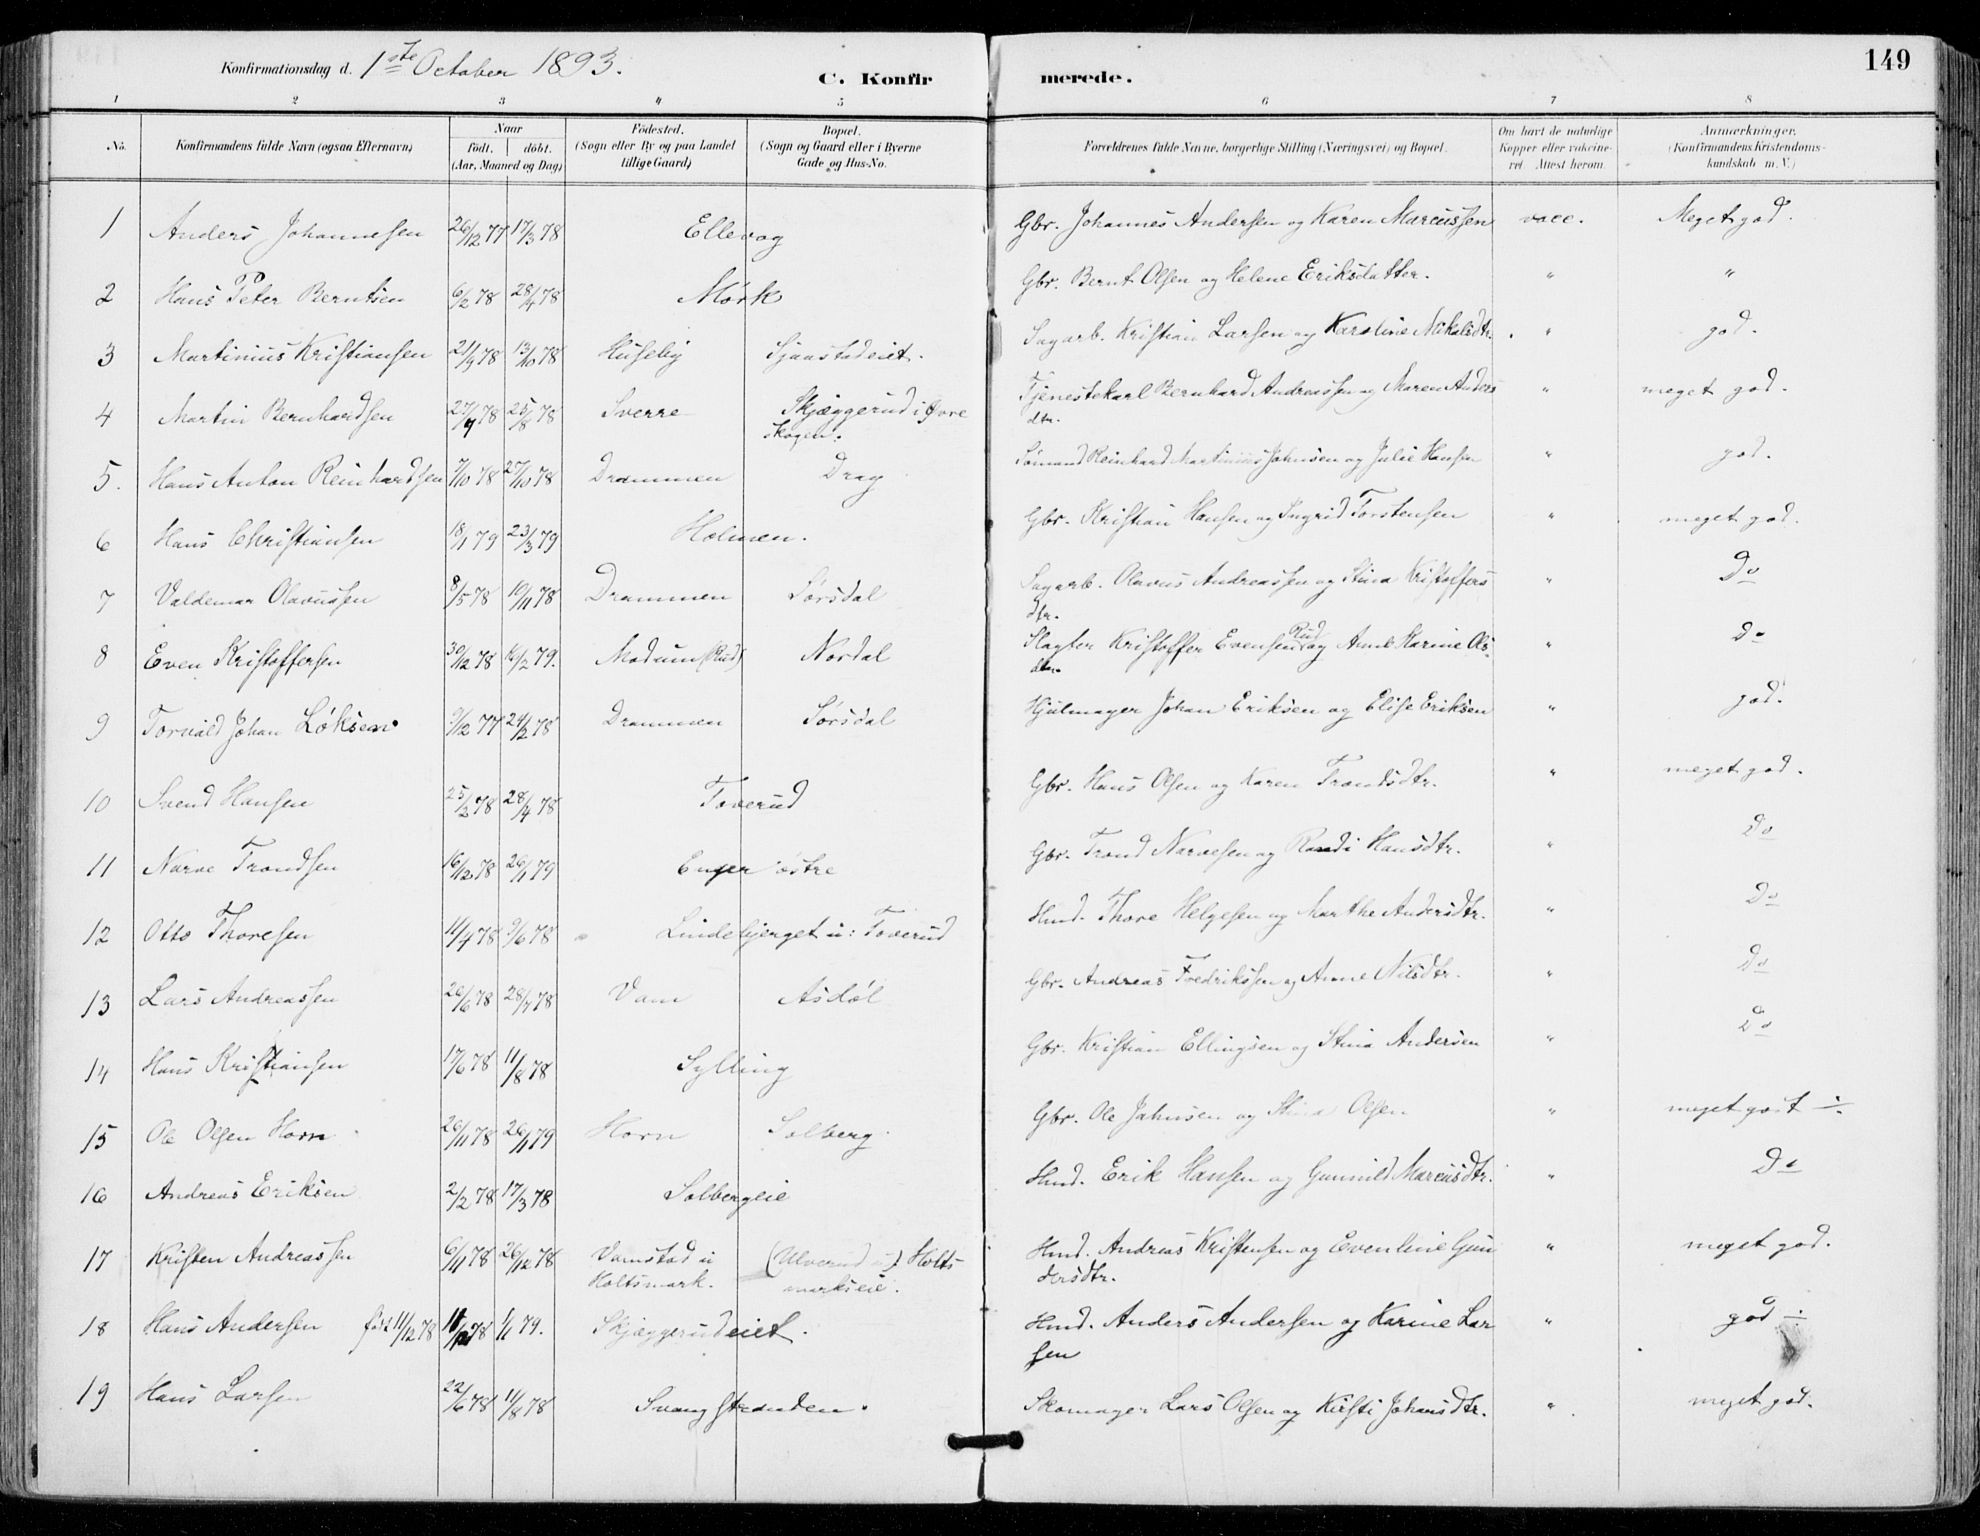 149
Konfirmationsdag d. 1ste October 1893.
C. Konfirmerede.
1 2 3 4 5 6 7 8
No. Konfirmandens fulde Navn (ogsaa Efternavn) Naar født. døbt. (Aar, Maaned og Dag) Fødested. (Sogn eller By og paa Landet tillige Gaard) Bopæl. (Sogn og Gaard eller i Byerne Gade og Hus-No. Forældrenes fulde Navne, borgerlige Stilling (Næringsvei) og Bopæl. Om havt de naturlige Kopper eller vaccineret. Attest herom. Anmærkninger. (Konfirmandens Kristendomskundskab m. V.)
1 Anders Johannesen 26/12 77 17/3 78 Ellevog Gbr. Johannes Andersen og Karen Marcussen vacc. Meget god.
2 Hans Peter Berntsen 6/2 78 28/4 78 Mørk Gbr. Bernt Olsen og Helene Eriksdatter. " "
3 Martinius Kristiansen 21/9 78 13/10 78 Huseby Sjaastadeiet. Sagarb. Kristian Larsen og Karoline Mikalsdtr. " god.
4 Martin Bernhardsen 78 25/8 78 Sverre Skjæggerud i Øvre Skogen. Tjenestekarl Bernhard Andreassen og Maren Anders
dtr. " meget god.
5. Hans Anton Reinhardsen 7/10 78 27/10 78 Drammen Drag Sømand Reinhard Martinius Johnsen og Julie Hansen " god.
6 Hans Christiansen 18/1 79 23/3 79 Holmen. Gbr. Kristian Hansen og Ingrid Torstensen " meget god.
7 Valdemar Olavussen 8/5 78 10/11 78 Drammen Sørsdal Sagarb. Olavus Andreassen og Stina Kristoffers
dtr. " Do
8 Even Kristoffersen 30/12 78 16/2 79. Modum (Rud) Nordal Slagter Kristoffer Evensen Rud og Anne Karine Ols
dtr. " Do
9 Torvald Johan Løksen 9/12 77 24/2 78 Drammen Sørsdal Hjulmager Johan Eriksen og Elise Eriksen " god.
10 Svend Hansen 25/2 78 28/4 78 Toverud Gbr. Hans Olsen og Karen Trondsdtr. " meget god.
11 Narve Trondsen 16/12 78 26/1 79 Enger østre Gbr. Trond Narvesen og Randi Hansdtr. " Do
12 Otto Thoresen 11/4 78 9/6 78 Lindebjerget u: Toverud Hmd. Thore Helgesen og Marthe Andersdtr. " Do
13 Lars Andreassen 26/6 78 28/7 78 Vam Asdøl Gbr. Andreas Fredrikssen og Anne Nilsdtr. " Do
14 Hans Kristiansen 17/6 78 11/8 78 Sylling Gbr. Kristian Ellingsen og Stina Andersen " Do
15 Ole Olsen Horn 26/11 78 26/1 79 Horn Solberg. Gbr. Ole Johnsen og Stina Olsen " meget godt ÷
16 Andreas Eriksen 2/2 78 17/3 78 Solbergeie Hmd. Erik Hansen og Gunnild Marcusdtr. " Do
17 Kristen Andreassen 6/11 78 26/12 78 Vamstad u Holtsmark. (Ulverud u) Holtsmarkseie. Hmd. Andreas Kristensen og Evenline Gun
dersdtr. " meget god.
18 Hans Andersen født 11/12 78 11/12 78 1/1 79. Skjæggerudeiet. Hmd. Anders Andersen og Karine Lar
sen " god ÷
19 Hans Larsen 22/6 78 11/8 78 Svangstranden. Skomager Lars Olsen og Kirsti Johansdtr. " meget god.